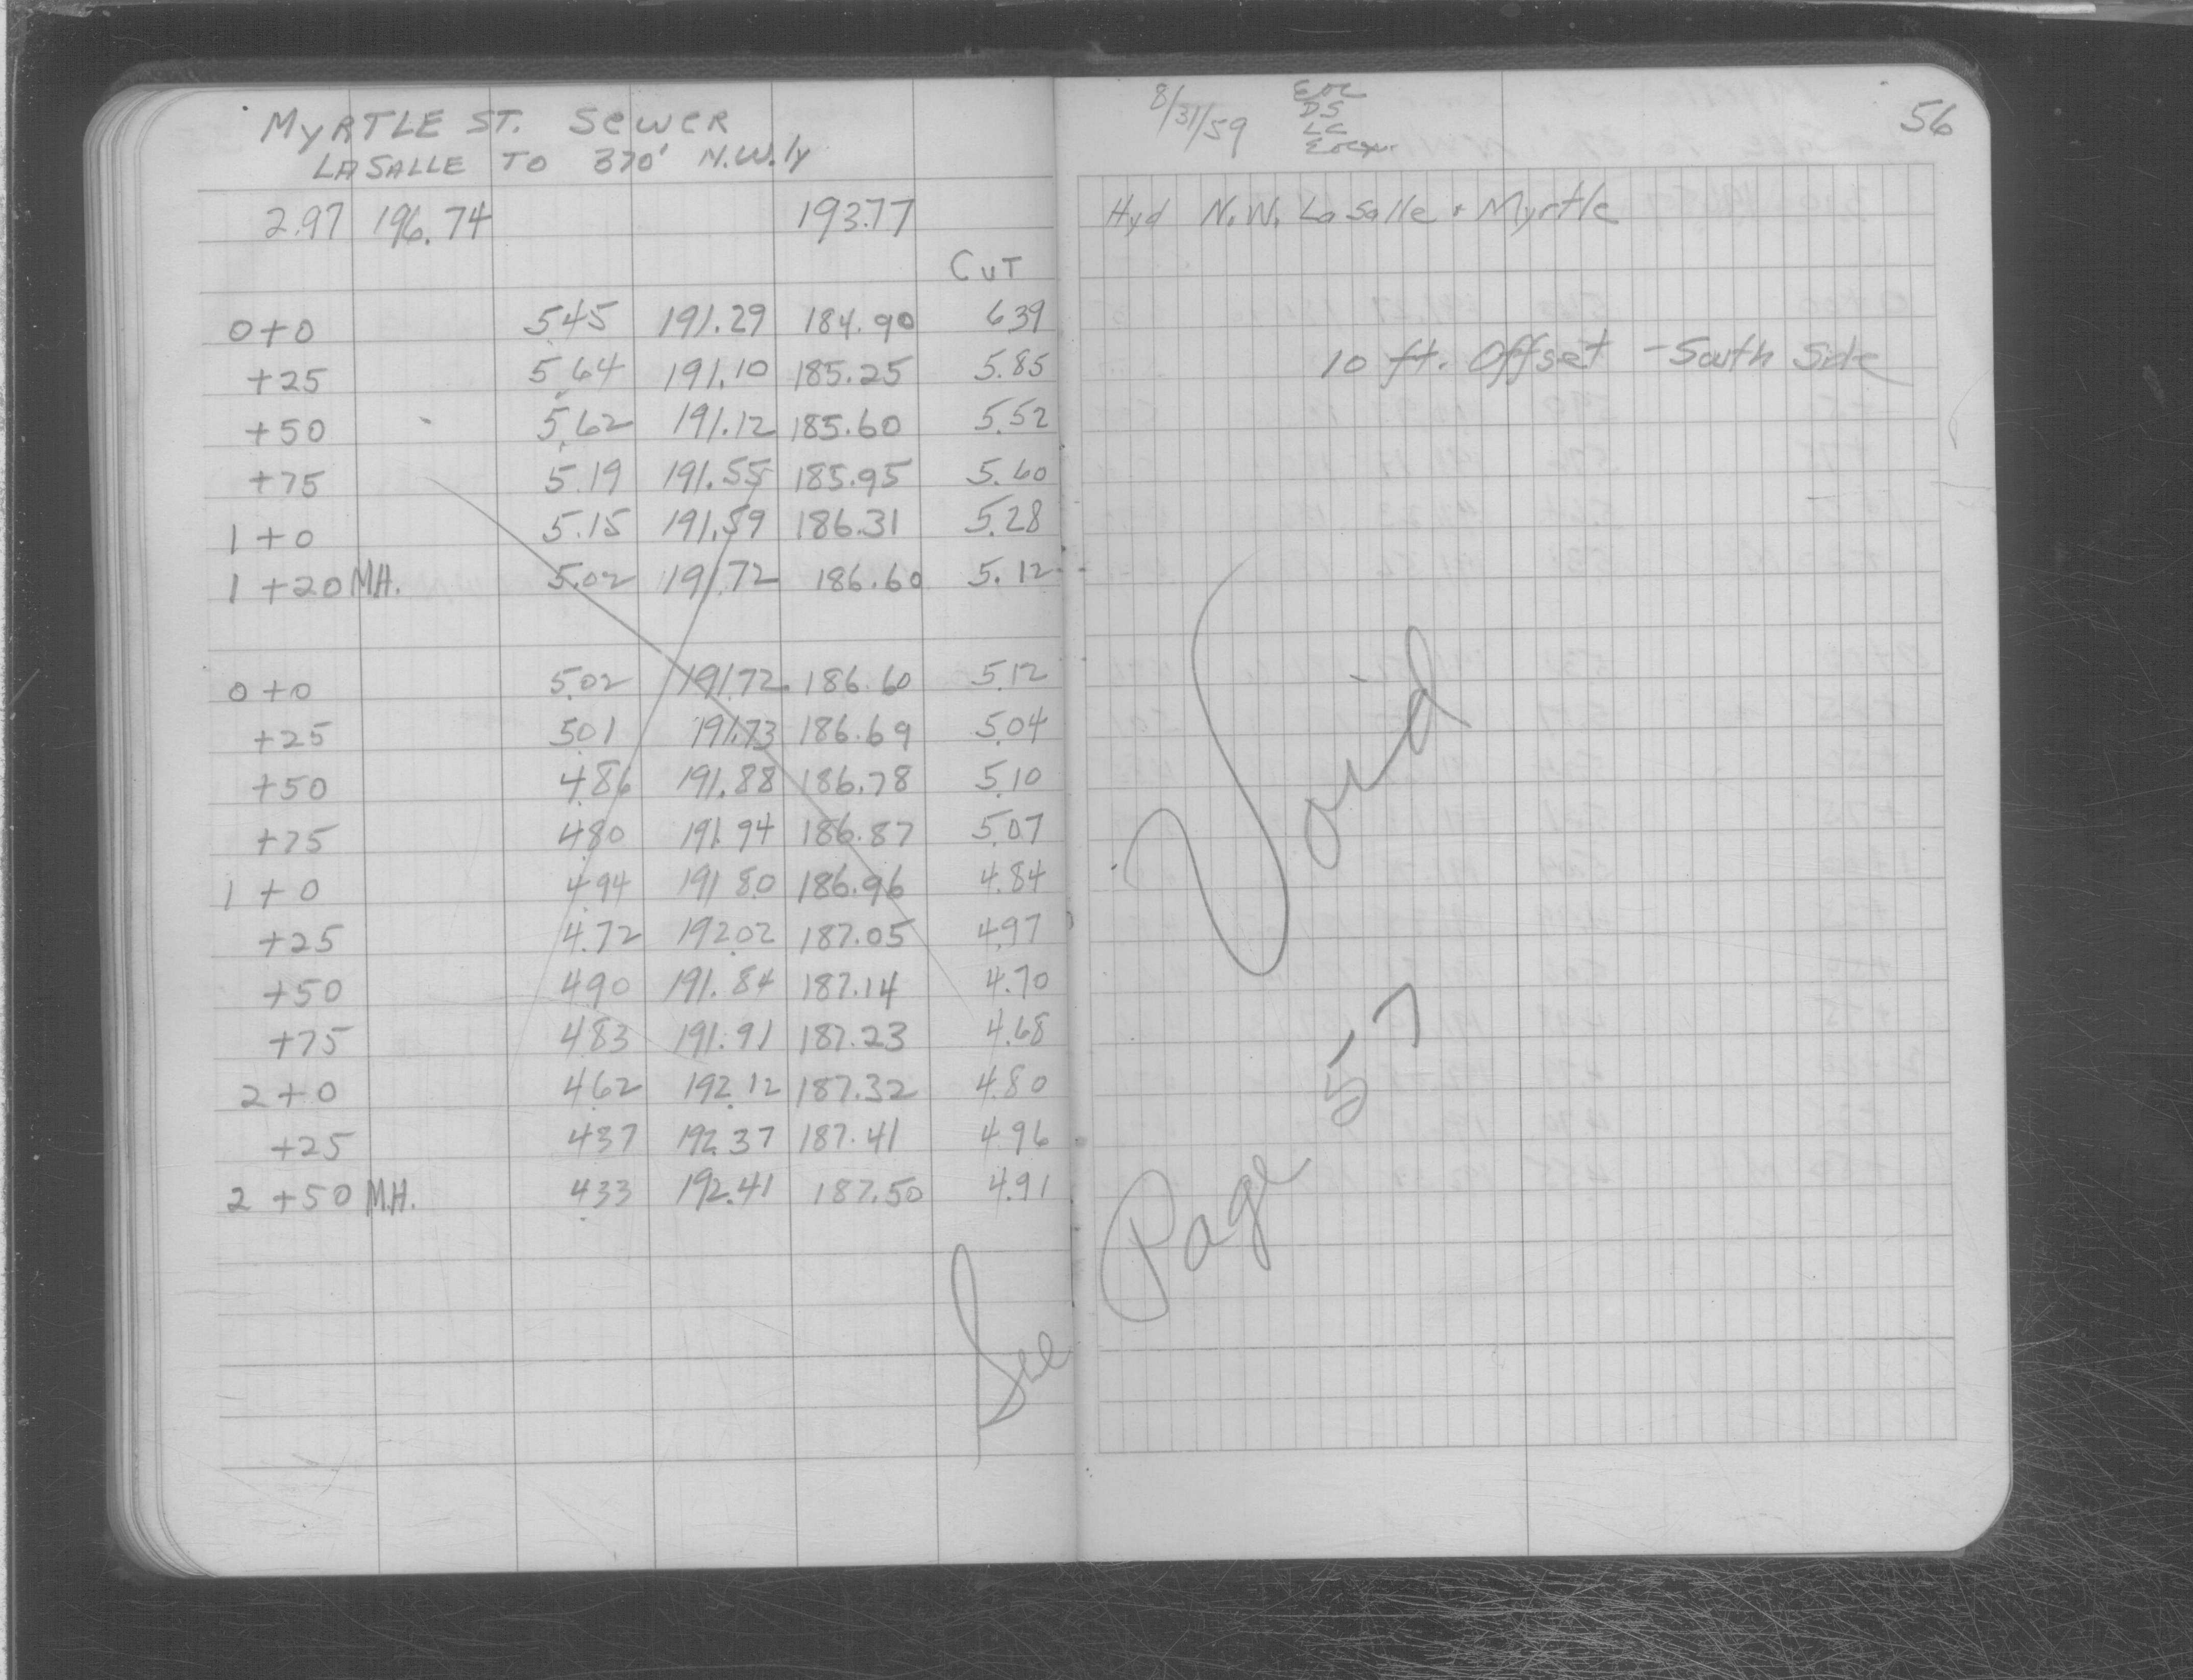 MYRTLE ST. SEWER
LASALLE TO 370' N.W.ly
2.97 196.74 193.77
CUT
0+0 5.45 191.29 184.90 6.39
+25 5.64 191.10 185.25 5.85
+50 5.62 191.12 185.60 5.52
+75 5.19 191.55 185.95 5.60
1+0 5.15 191.59 186.31 5.28
1+20 M.H. 5.02 191.72 186.60 5.12
0+0 5.02 191.72 186.60 5.12
+25 5.01 191.73 186.69 5.04
+50 4.86 191.88 186.78 5.10
+75 4.80 191.94 186.87 5.07
1+0 4.94 191.80 186.96 4.84
+25 4.72 192.02 187.05 4.97
+50 4.90 191.84 187.14 4.70
+75 4.83 191.91 187.23 4.68
2+0 4.62 192.12 187.32 4.80
+25 4.37 192.37 187.41 4.96
2+50 M.H. 4.33 192.41 187.50 4.91
8/31/59
EOC
DS
LC
56
Hyd N.W. LaSalle + Myrtle
10 ft. Offset - South Side
Void
See Page 57